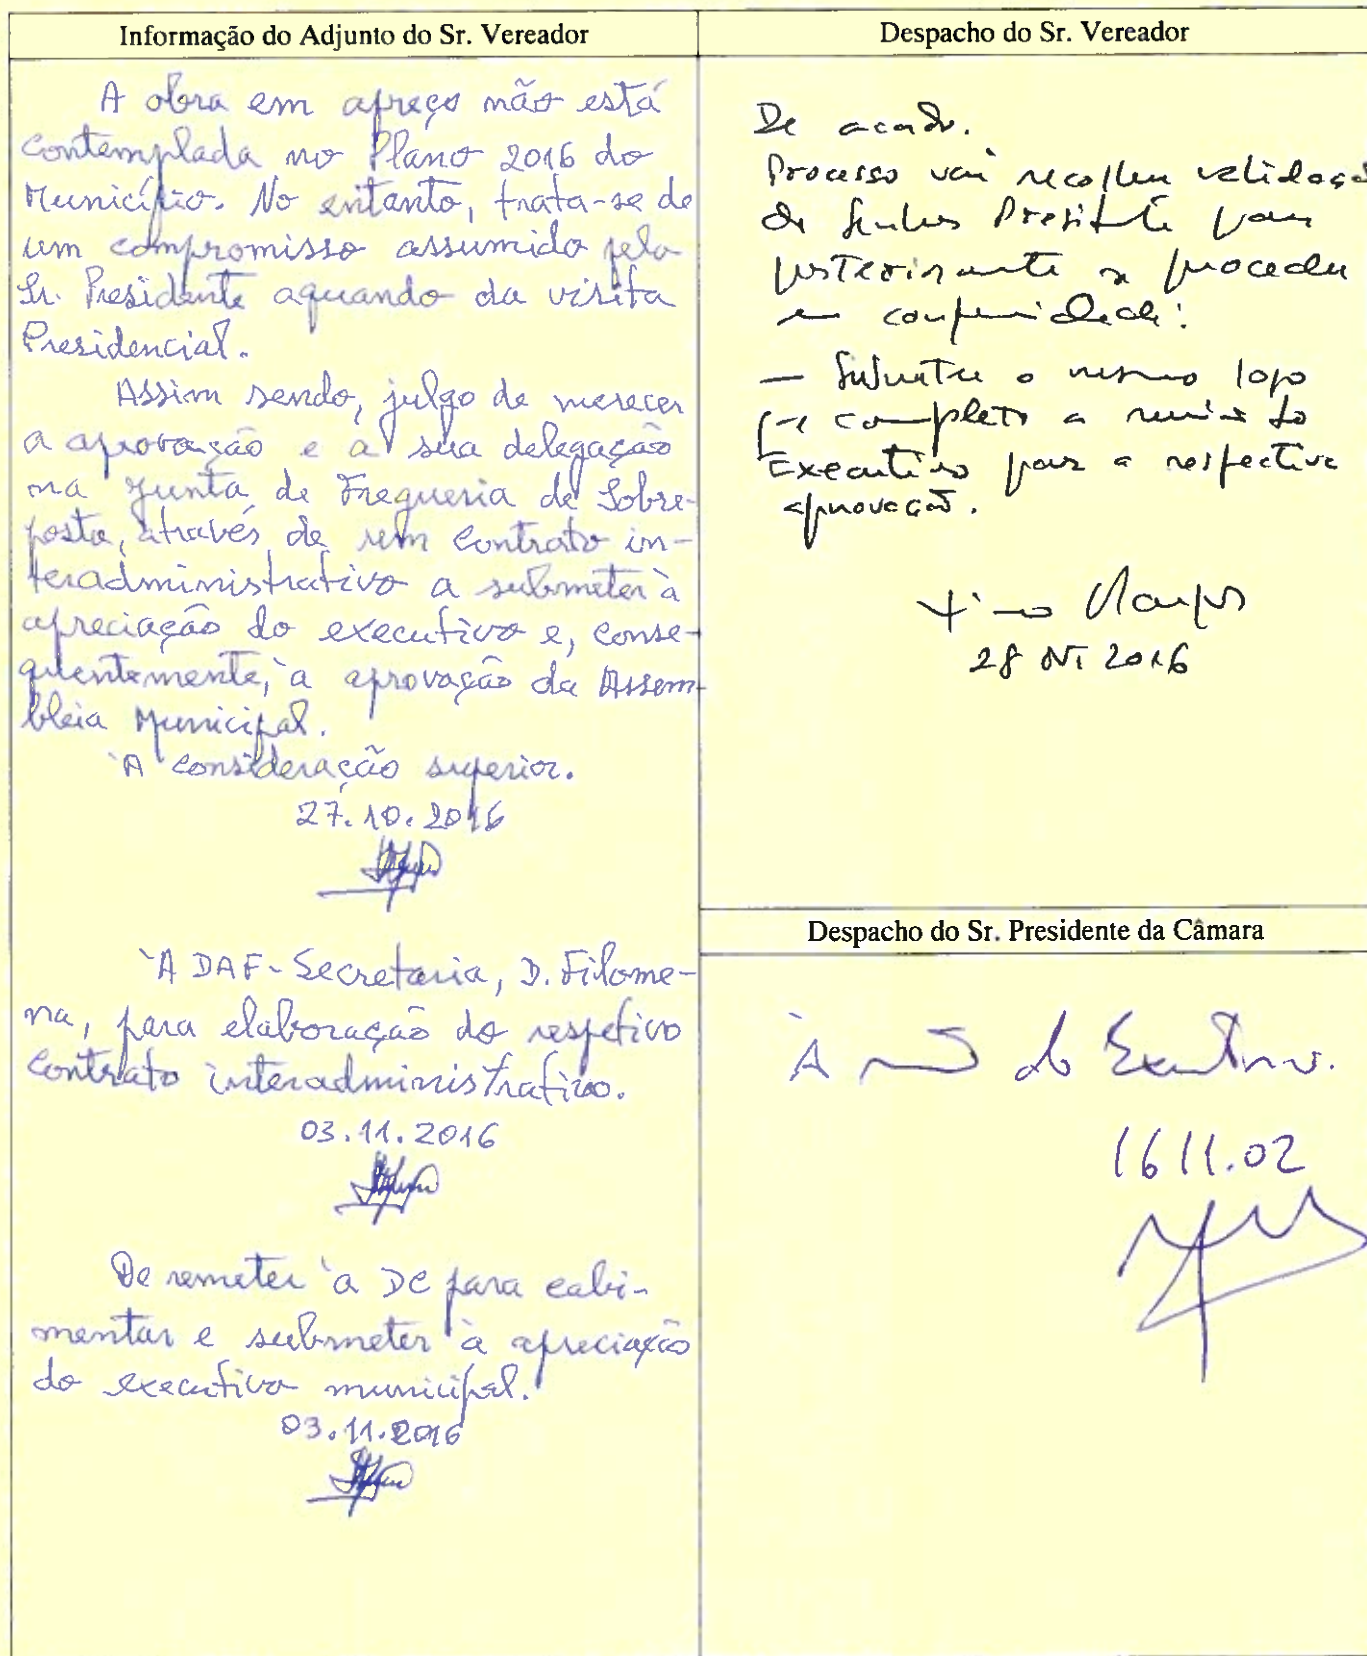 Informação do Adjunto do Sr. Vereador
A obra em apreço não está
contemplada no Plano 2016 do
Município. No entanto, trata-se de
um compromisso assumido pelo
Sr. Presidente aquando da visita
Presidencial.
Assim sendo, julgo de merecer
a aprovação e a sua delegação
na Junta de Freguesia de Sobre-
posta, através de um contrato in-
teradministrativo a submeter à
apreciação do executivo e, conse-
quentemente, à aprovação da Assem-
bleia Municipal.
À consideração superior.
27.10.2016
À DAF-Secretaria, D. Filome-
na, para elaboração do respetivo
contrato interadministrativo.
03.11.2016
De remeter à DC para cabi-
mentar e submeter à apreciação
do executivo municipal.
03.11.2016
Despacho do Sr. Vereador
De acordo.
Processo vai recolher validação
do Senhor Presidente para
posteriormente se proceder
em conformidade:
— Submeter o mesmo logo
que completo a reunião do
Executivo para a respectiva
aprovação.
28 2016
Despacho do Sr. Presidente da Câmara
À do Executivo.
1611.02